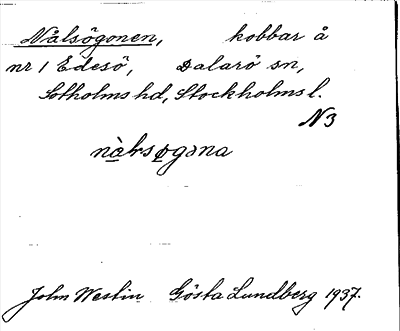 Nålsögonen, kobbar å
nr 1 Edesö, Dalarö sn,
Sotholms hd, Stockholms l.
N3
John Westin Gösta Lundberg 1937.